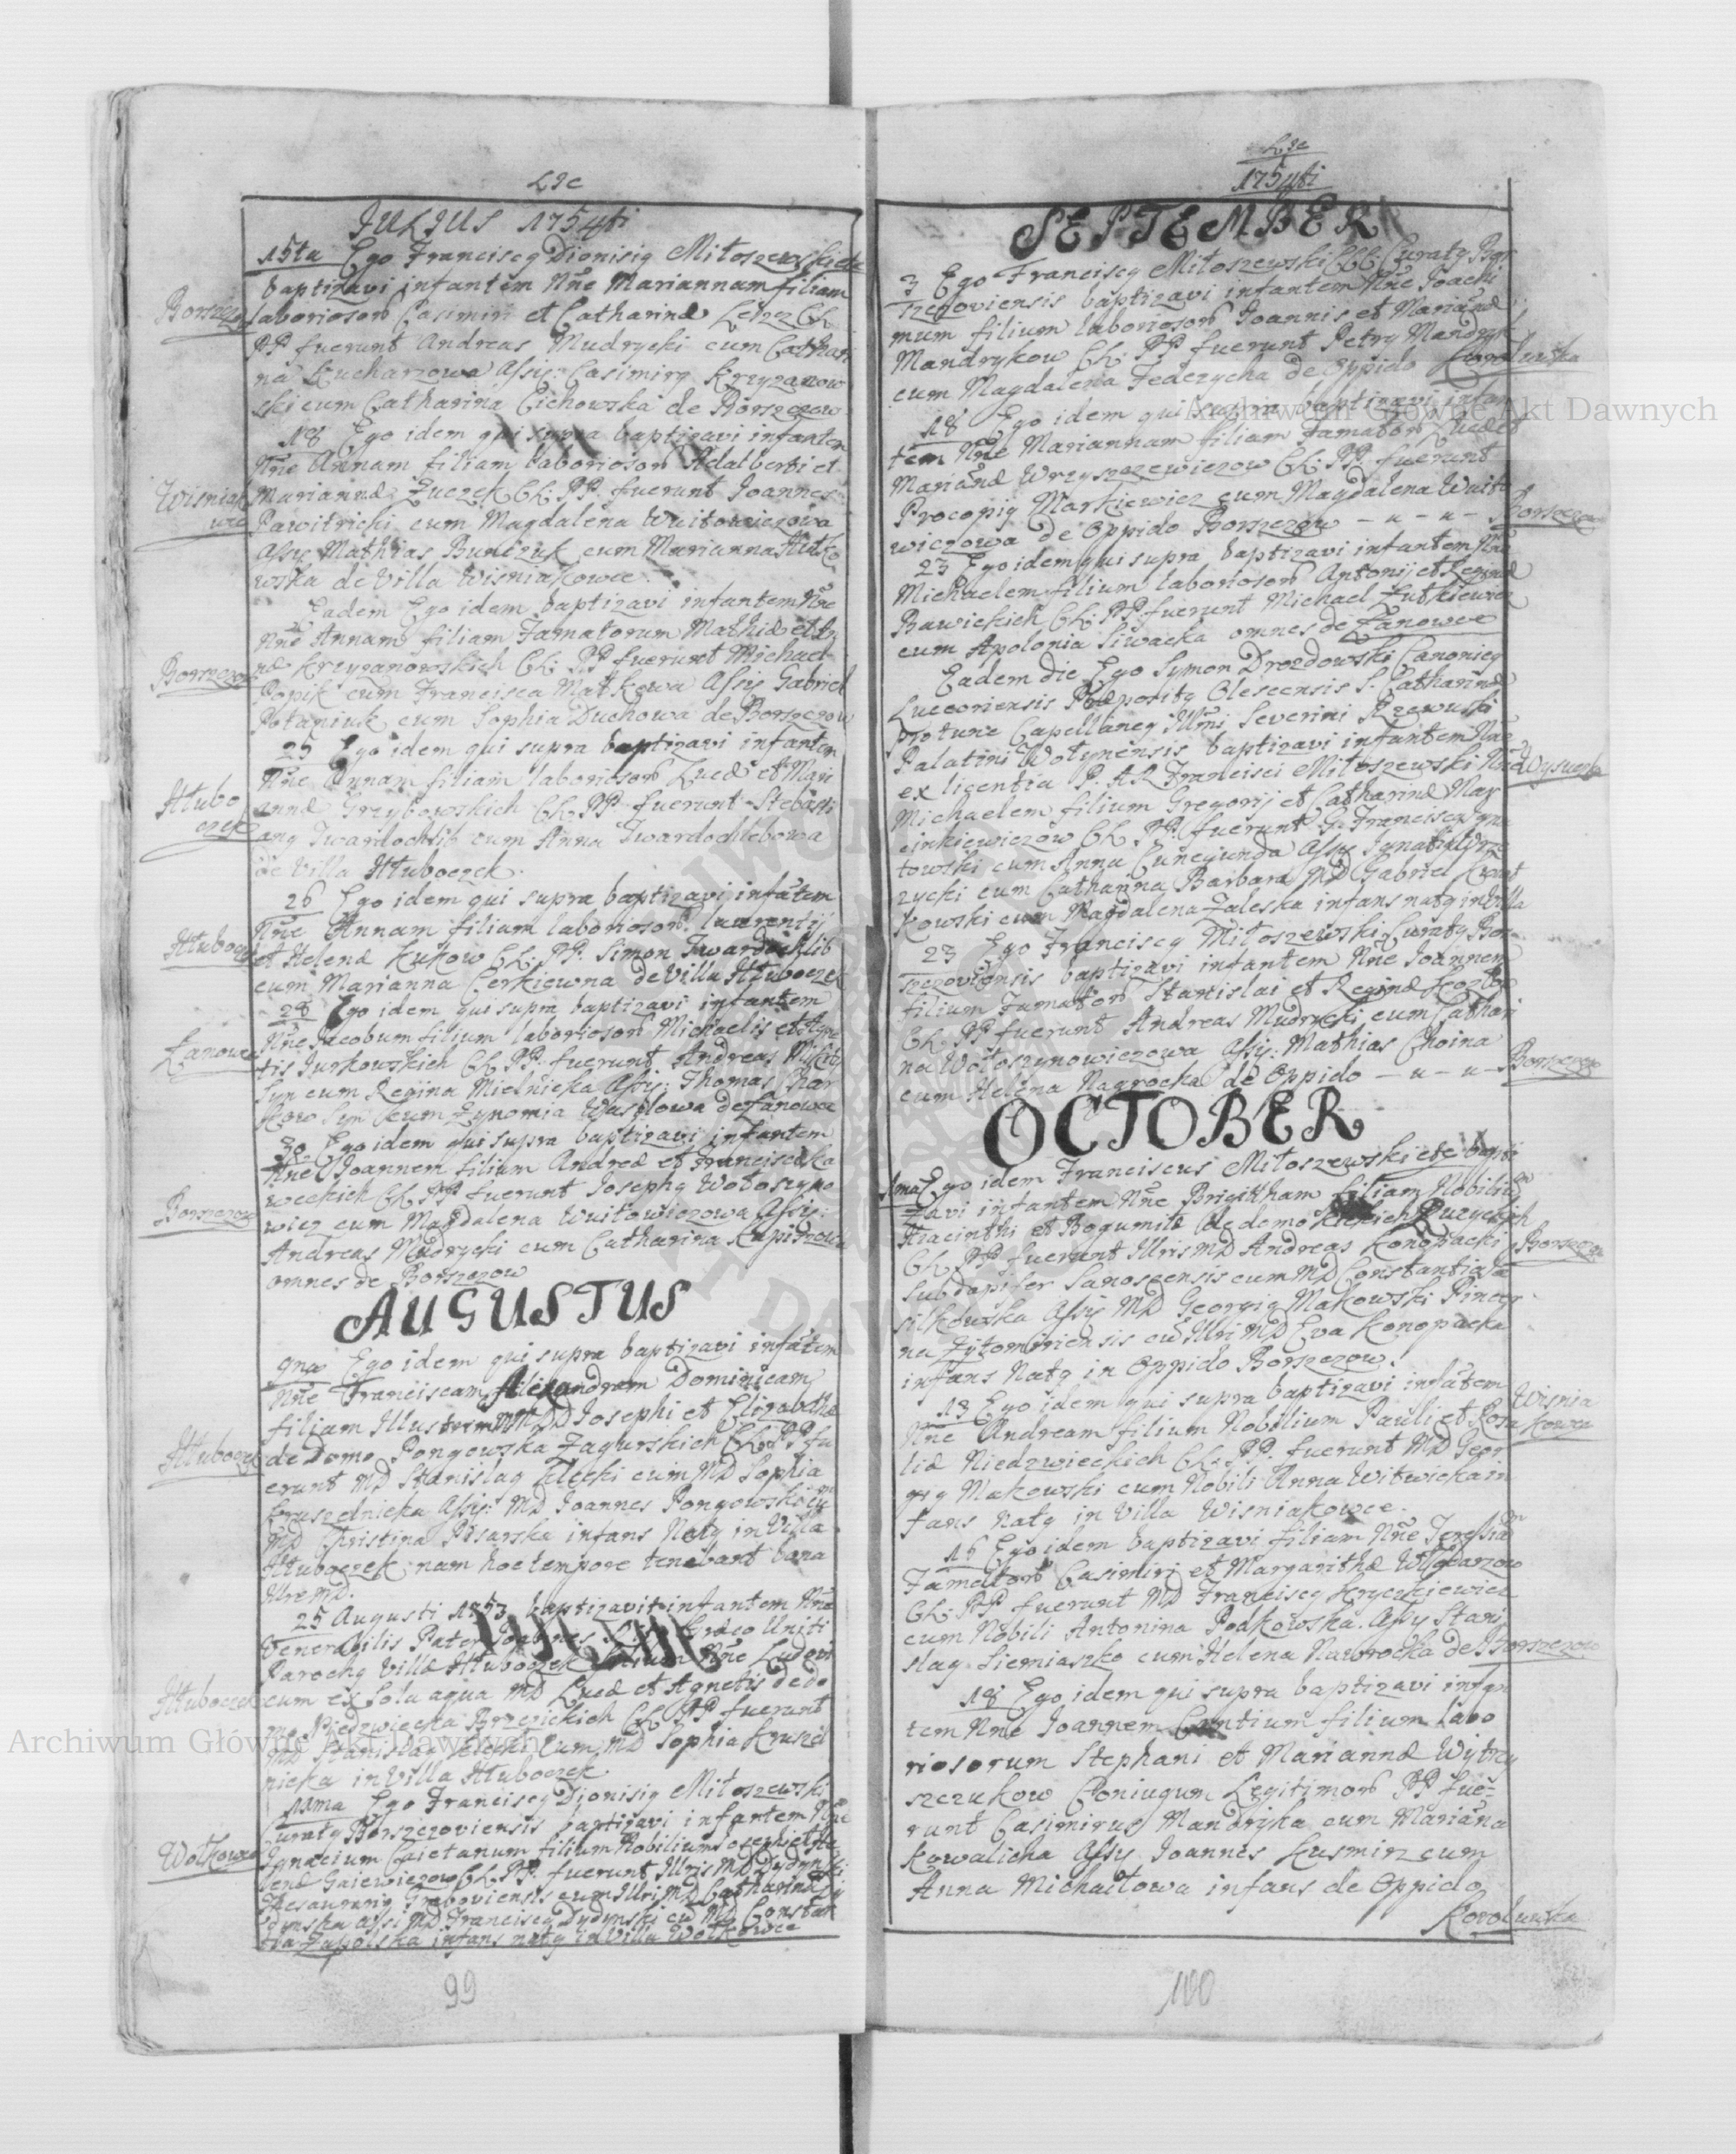 LJC
JULIUS 1754ti
15ta Ego Franciscq Dionisiq Miłoszewski etc
baptizavi infantem Nñe Mariannam filiam
Borszczow
laboriosoru Casimiri et Catharinæ Leszcz CL
PP fuerunt Andreas Mudrycki cum Cathari
na Kucharzowa Assys: Casimirq Krzyzanow
ski cum Catharina Cichowska de Borszczow
18 Ego idem qui supra baptizavi infantem
Nñe Annam filiam laboriosoru Adalberti et
Wisniako
wce
Mariannæ Zuczek CL: PP. fuerunt Joannes
Pawitricki cum Magdalena Wuitowiczowa
Assys Mathias Buniczuk cum Marianna
wska de Villa Wisniakowce.
Eadem Ego idem baptizavi infantem Nñe
Nñe Annam filiam Famatorum Mathiæ et An
næ Krzyzanowskich CL: PP fuerunt Michael
Borszczow
Popik cum Francisca Małkowa Assys Gabriel
Potaniuk cum Sophia Duchowa de Borszczow
25 Ego idem qui supra baptizavi infantem
Nñe Annam filiam laboriosoru Lucæ et Mari
Hłubo
czek
annæ Grzybowskich CL. PP fuerunt Stebasti
anq Twardochlib cum Anna Twardochlebowa
de Villa Hłuboczek.
26 Ego idem qui supra baptizavi infãtem
Nñe Annam filiam laboriosoru laurentij
Hłuboczek
et Helenæ Kukow CL. PP. Simon Twardochlib
cum Marianna Cerkiewna de Villa Hłuboczek
28 Ego idem qui supra baptizavi infantem
Nñe Jacobum filium laboriosoru Michaelis et Agne
Łanowce
tis Jurkowskich CL PP. fuerunt Andreas
Syn cum Regina Mielnicka Assys: Thomas
Syn cum Zynowia Wasylowa de Łanowce
30. Ego idem qui supra baptizavi infantem
Nñe Joannem filium Andreæ et Franciscæ
weckich CL PP fuerunt Josephq Wołoszyno
Borszczow
wicz cum Magdalena Wuitowiczowa Assys:
Andreas Mudrycki cum Catharina
omnes de Borszczow
AUGUSTUS
Ego idem qui supra baptizavi infãtem
Nñe Franciscam Alexandram Dominicam
filiam DD Josephi et Elizabethæ
Hłuboczek
de Domo Pongowska Zagurskich CL PP fu
erunt MD Stanislaq cum MD Sophia
Kruszelnicka Assys: MD Joannes Pongowski cũ
MD Christina Pisarska infans Natq in Villa
Hłuboczek nam hoc tempore tenebant bona
MD.
25 Augusti 1753 baptizavit infantem Nñe
Venerabilis Pater Joannes Græco Uniti
Parochq Villæ Hłuboczek filium Nñe Ludovi
Hłuboczek
cum ex sola aqua MD Lucæ et Agnetis de do
mo Niedzwiecka Brzezickich CL PP fuerunt
MD Stanislaq cum MD Sophia Kruszel
nicka in Villa Hłuboczek
11ma Ego Franciscq Dionisiq Miłoszewski
Curatq Borszczoviensis baptizavi infantem Nñe
Wołkowce
Ignacium Caietanum filium Nobilium
Gaiewiczow CL. PP. fuerunt Illris MD Dydynski
Thesaurariq Graboviensis cum Illri MD Catharina Dy
dynska assi MD Franciscq Dydynski cũ MD Constan
tia Zapolska infans natq in Villa Wołkowce
99
LJC
1754ti
SEPTEMBER
3 Ego Franciscq Miłoszewski Curatq Bor
szczoviensis baptizavi infantem Nñe Joachi
mum filium laboriosoru Joannis et Mariãnæ
Mandrykow CL: PP fuerunt Petrq Mandryk
cum Magdalena Fedczycha de Oppido Korolowka
18 Ego idem qui supra baptizavi infan
tem Nñe Mariannam filiam Famatoru Lucæ et
Mariãnæ Wrzyszczewiczow CL: PP fuerunt
Procopiq Markiewicz cum Magdalena Wuito
wiczowa de Oppido Borszczow – u – u – Borszczow
23 Ego idem qui supra baptizavi infantem Nñe
Michaelem filium laboriosoru Antonij et Reginæ
Bawickich CL: PP fuerunt Michael Zutkiewicz
cum Apolonia Siwacka omnes de Łanowce
Eadem die Ego Symon Drozdowski Canonicq
Luceoriensis Præpositq Olescensis S. Catharinæ
protunc Capellaneq Illmi Severini Rzewuski
Palatini Wołynensis baptizavi infantem Nñe
ex licentia P. AR Francisci Miłoszewski Nñe Wysuczka
Michaelem filium Gregorij et Catharinæ Mar
cinkiewiczow CL. PP. fuerunt G. Franciscq
towski cum Anna Cunegunda Assys Ignatiq
zycki cum Catharina Barbara MD Gabriel
kowski cum Magdalena Zaleska infans natq in Villa
23 Ego Franciscq Miłoszewski Curatq Bor
szczoviensis baptizavi infantem Nñe Joannem
filium Famatoru Stanislai et Reginæ
CL PP fuerunt Andreas Mudrycki cum Cathari
na Wołoszynowiczowa Assys: Mathias Choina
cum Helena Nagrocka de Oppido – u – u – Borszczow
OCTOBER
1ma Ego idem Franciscus Miłoszewski etc bapti
zavi infantem Nñe Brigittham filiam Nobiliũ
Hiacinthi et Bogumilæ de domo Ruzyckich
CL PP fuerunt Illris MD Andreas Konopacki Borszczow
Subdapifer Sanoscensis cum MD Constantia
silkowska Assys MD Georgiq Makowski Pincer
na Zytomiriensis cũ Illri MD Eva Konopacka
infans Natq in Oppido Borszczow.
13 Ego idem qui supra baptizavi infãtem
Wisnia
kowce
Nñe Andream filium Nobilium Pauli et Rosa
liæ Niedzwieckich CL. PP. fuerunt MD Geor
giq Makowski cum Nobili Anna Witwicka in
fans natq in Villa Wisniakowce.
15 Ego idem baptizavi filiam Nñe Teresiãm
Famatoru Casimiri et Margarithæ
CL: PP fuerunt MD Franciscq
cum Nobili Antonina Podkowska. Assys Stani
slaq Siemiaszko cum Helena Nawrocka de Borszczow
18 Ego idem qui supra baptizavi infan
tem Nñe Joannem Cantium filium labo
riosorum Stephani et Mariannæ Wytry
szczukow Coniugum Legitimoru PP fue
runt Casimirus Mandryka cum Mariãna
Kowalicha Assys Joannes Kusmirz cum
Anna Michaiłowa infans de Oppido
Korolowka
100
Archiwum Główne Akt Dawnych
Archiwum Główne Akt Dawnych